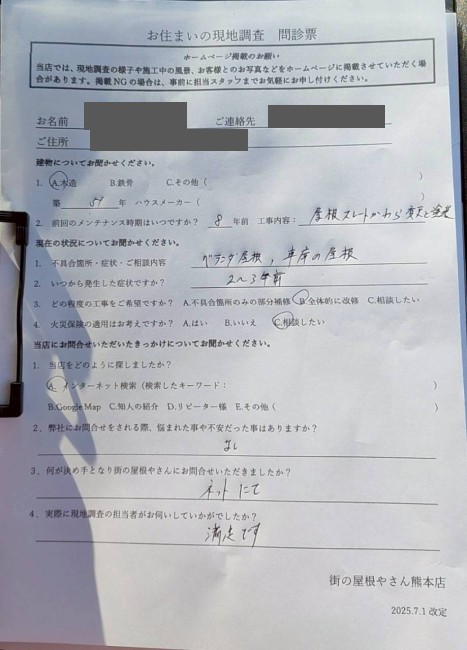 お住まいの現地調査 問診票
ホームページ掲載のお願い
当店では、現地調査の様子や施工中の風景、お客様とのお写真などをホームページに掲載させていただく場
合があります。掲載NGの場合は、事前に担当スタッフまでお気軽にお申し付けください。
お名前 ご連絡先
ご住所
建物についてお聞かせください。
1. A.木造 B.鉄骨 C.その他（ ）
築 年 ハウスメーカー（ ）
2. 前回のメンテナンス時期はいつですか？ 8 年前 工事内容： 屋根スレートかわら
現在の状況についてお聞かせください。
1. 不具合箇所・症状・ご相談内容 ベランダ屋根, 車庫の屋根
2. いつから発生した症状ですか？ 2〜3年前
3. どの程度の工事をご希望ですか？ A.不具合箇所のみの部分補修 B.全体的に改修 C.相談したい
4. 火災保険の適用はお考えですか？ A.はい B.いいえ C.相談したい
当店にお問合せいただいたきっかけについてお聞かせください。
1. 当店をどのように探しましたか？
A. インターネット検索（検索したキーワード： ）
B.Google Map C.知人の紹介 D.リピーター様 E.その他（ ）
2. 弊社にお問合せをされる際、悩まれた事や不安だった事はありますか？
なし
3. 何が決め手となり街の屋根やさんにお問合せいただきましたか？
ネットにて
4. 実際に現地調査の担当者がお伺いしていかがでしたか？
満足です
街の屋根やさん熊本店
2025.7.1 改定